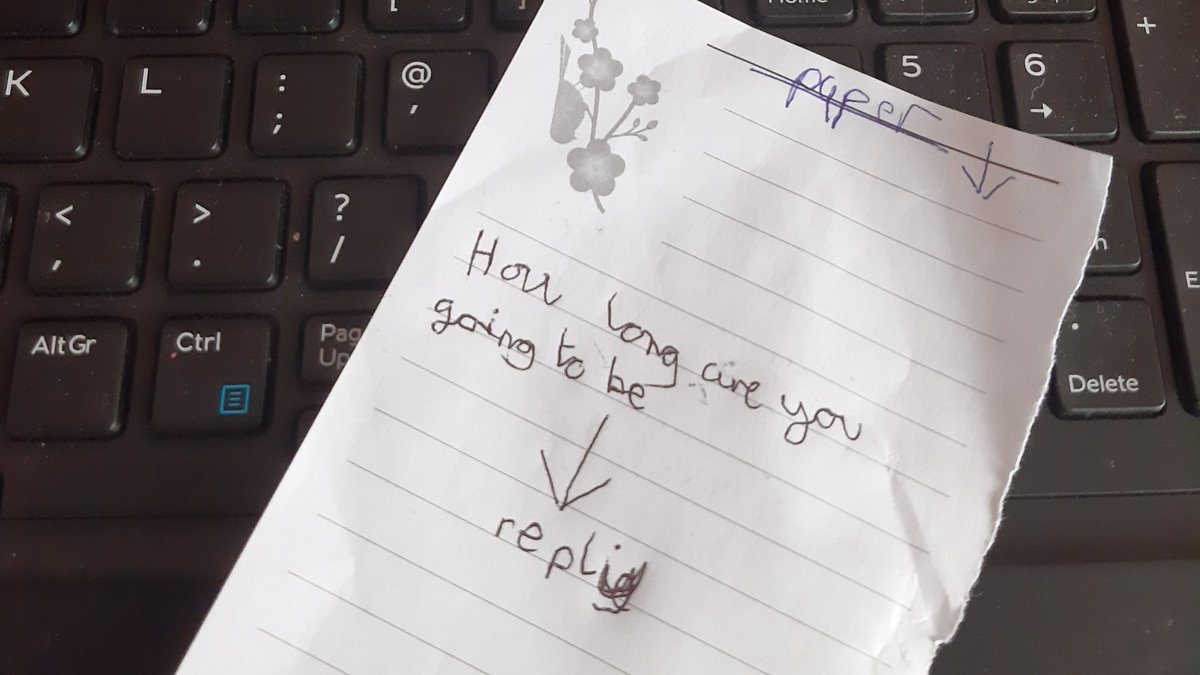 Home
[
]
+
K
L
:
;
@
'
5
6
→
<
,
>
.
?
/
AltGr
Ctrl
Pag
Up
.
Delete
paper
How long are you
going to be
reply